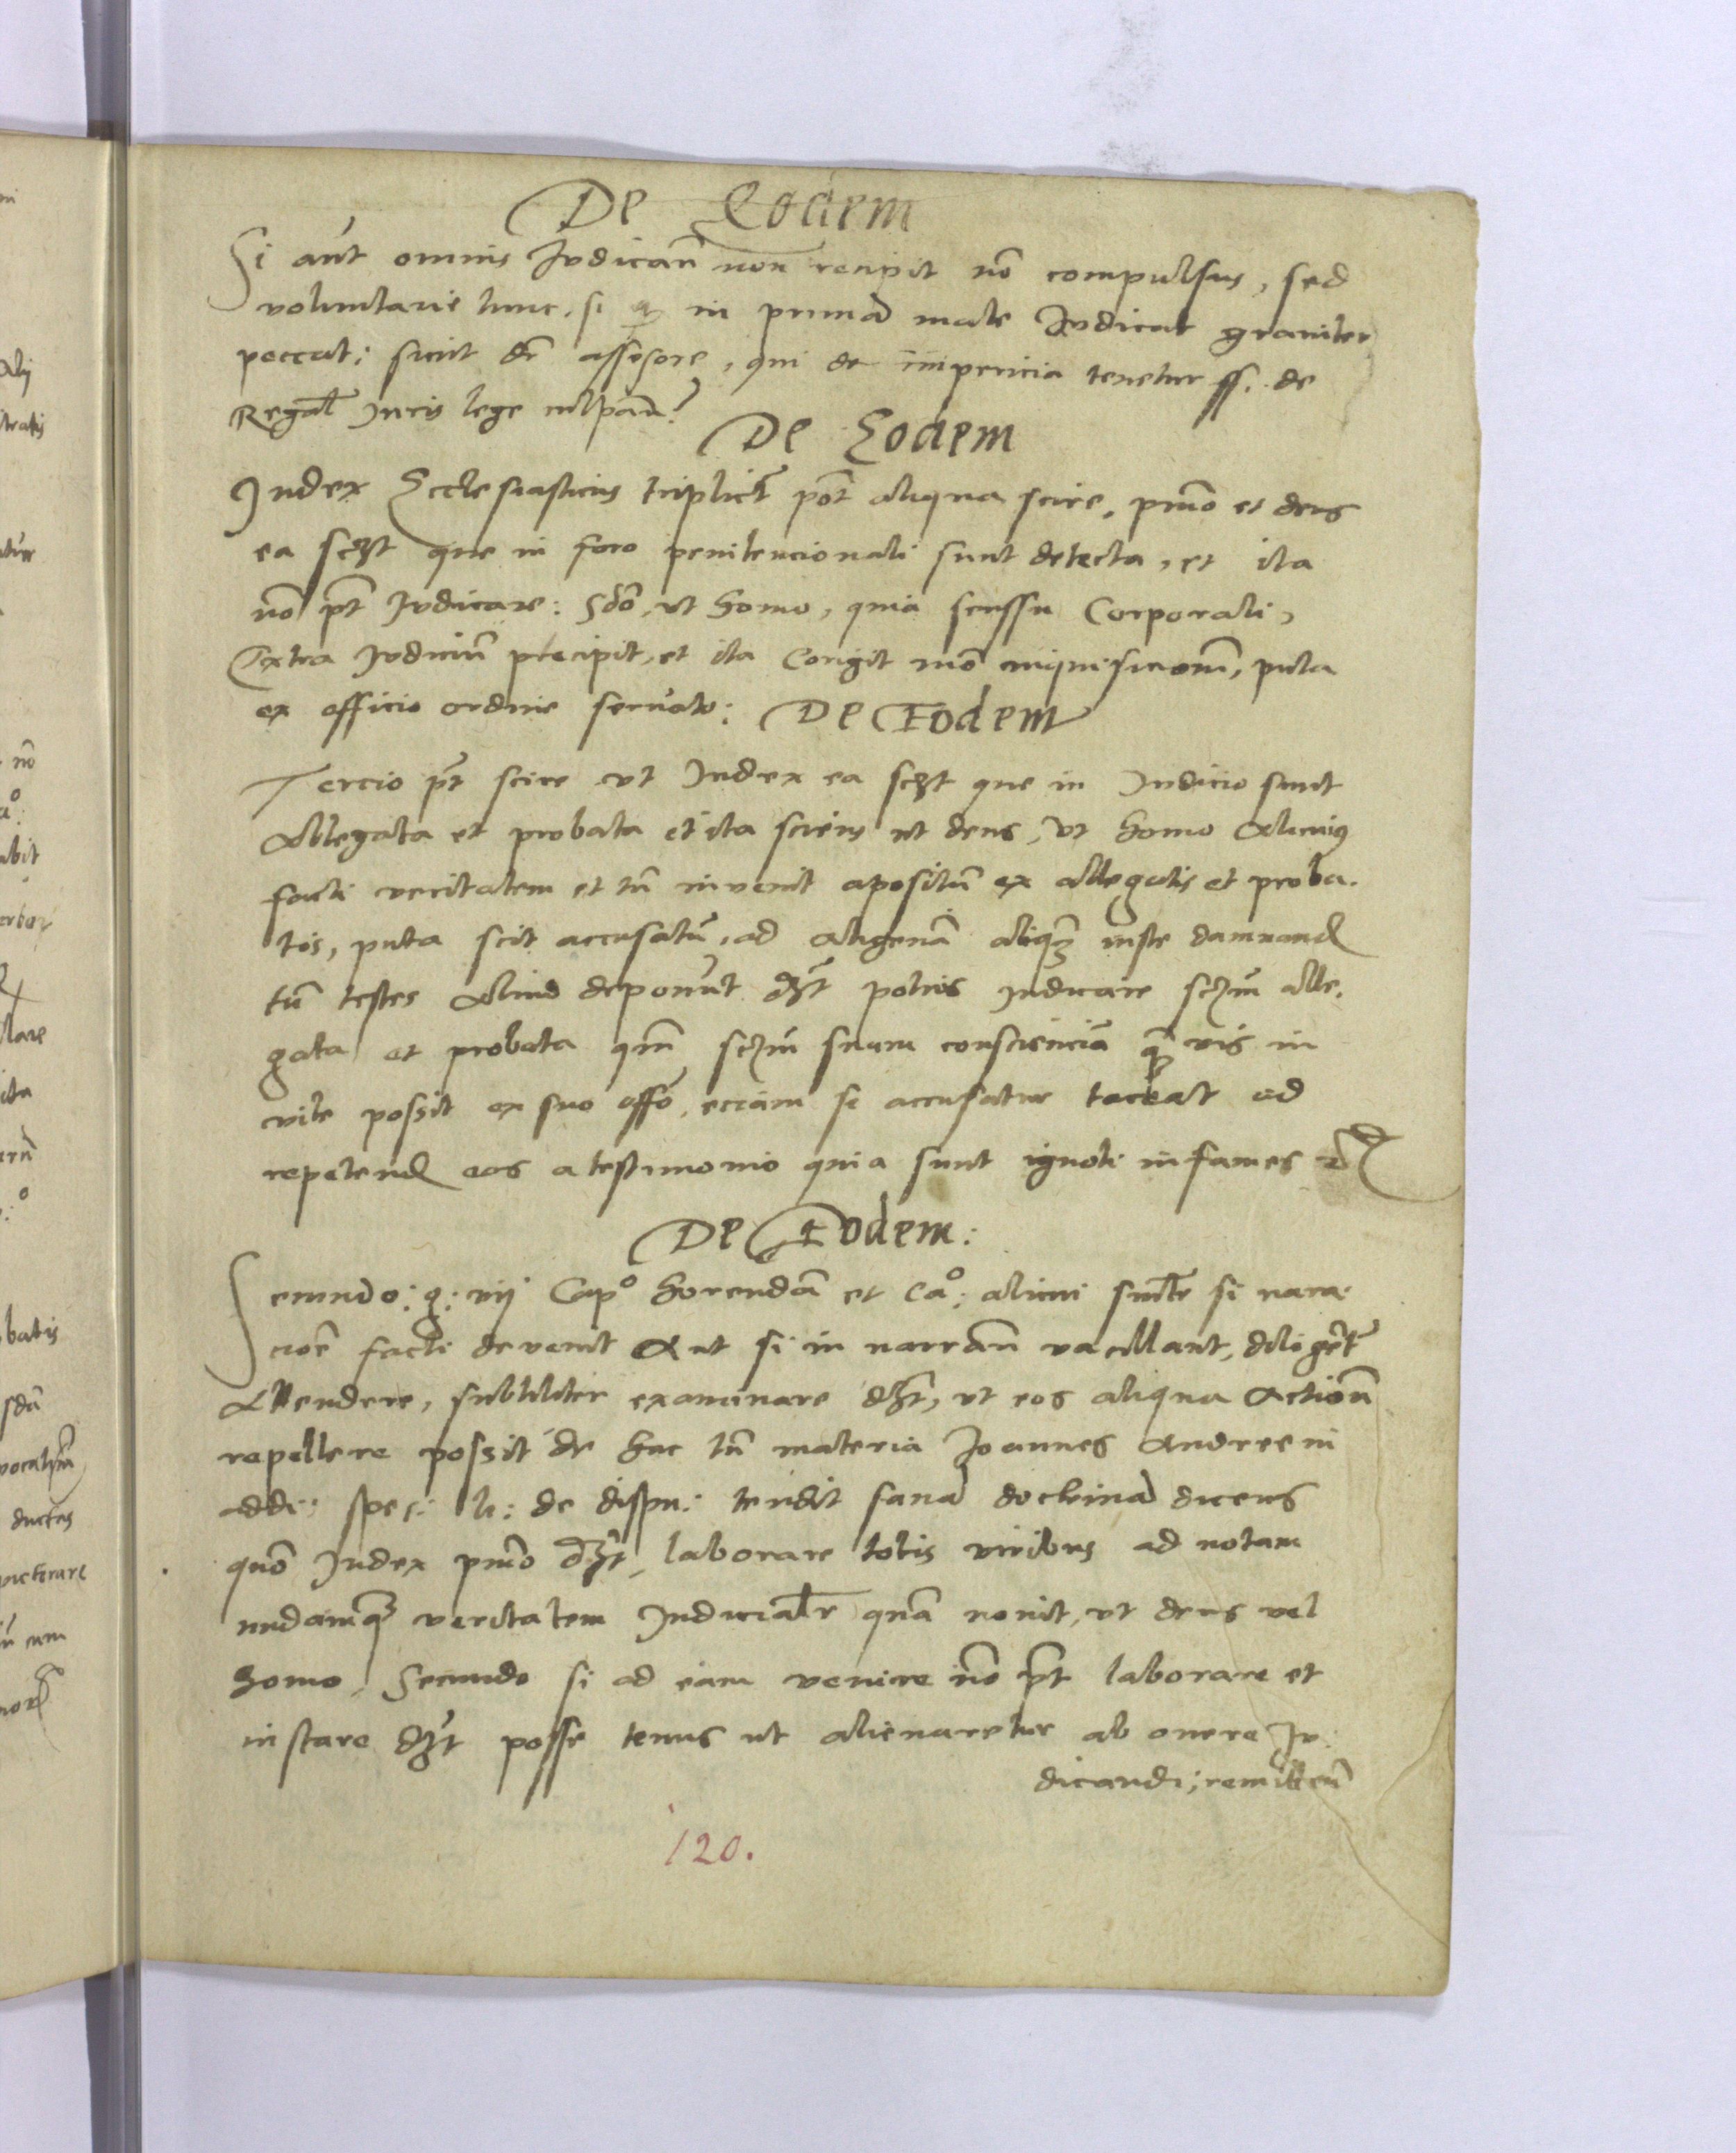 De Eodem
Si aut omnis Judican non recipit no compulsus, sed
voluntarie tunc, si in prima male Judicat graviter
peccat: sicut dr assesore, qui de impericia tenetur ff. de
Regal Juris lege culpam?
De Eodem
Judex Ecclesiasticus triplict pot aliqua scire, pmo et deus
ea sczt que in foro penitencionali sunt detecta, et ita
no pt Judicare: Sdo, ut homo, quia senssu Corporali,
Extra Judiciu pcecipit, et ita Corigit mo inquisicionem, puta
ex officio ordine servato: De Eodem
Tercio pt scire ut Judex ea sczt que in Judicio sunt
Allegata et probata et ita sciens ut deus, ut homo Alicuius
facti veritatem et tn invenit apositu ex allegatis et proba.
tis, puta scit accusatu, ad aliqm iniuste damnand
tn testes Aliud deponut dzt potius iudicare sczm alle.
gata et probata qm sczm suam conscienciam vis in
rite possit ex suo offo, eciam si accusatur taceat ad
repelend eos a testimonio quia sunt ignoti infames
De Eodem:
Secundo: q: vij Capo horendam et Ca: alicui smlr si nara.
cioe facti devenit Aut si in narram vacillant, diligett
Attendere, subtiliter examinare dzt, ut eos aliqua Actiom
repellere possit de hac tn materia Joannes Andree in
addi: spec: ti: de dispu: tendit sana doctrina dicens
quo Judex pmo dzt, laborare totis viribus ad notam
nudamqz veritatem Judicialr qua novit, ut deus vel
homo, Secundo si ad eam venire no pt laborare et
instare dzt posse tenus ut alienaretur ab onere Ju.
dicandi; remitten
120.